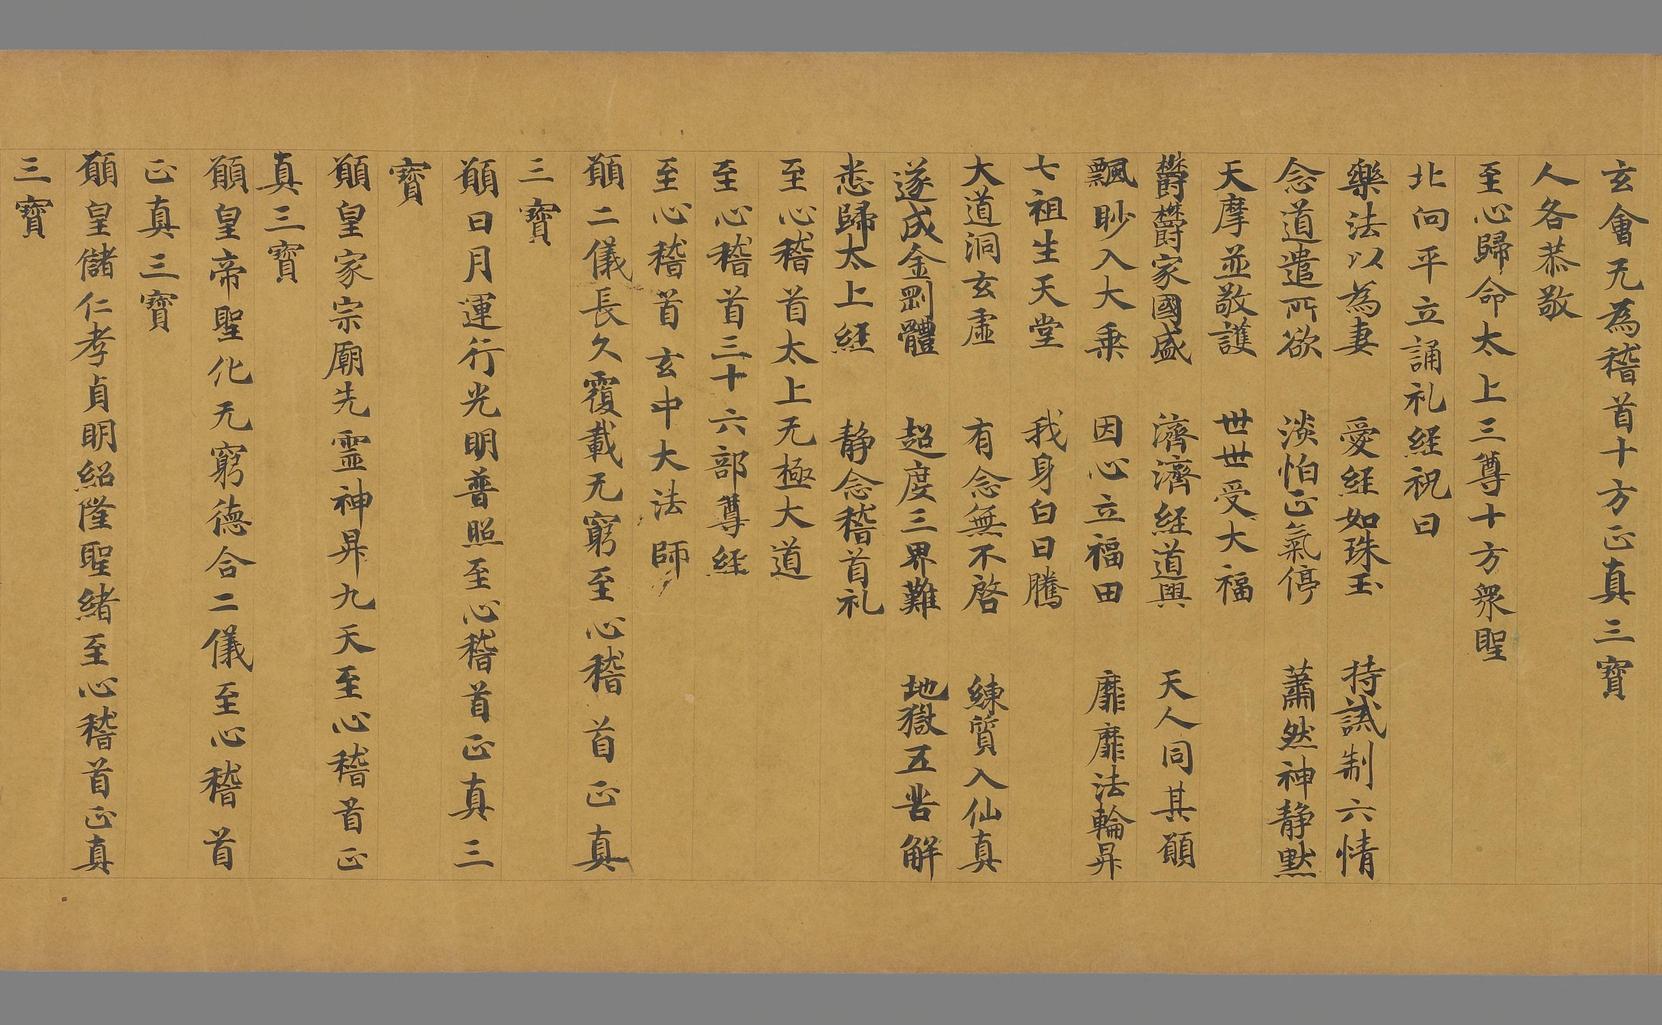 玄會无為稽首十方正真三寶
人各恭敬
至心歸命太上三尊十方衆聖
北向平立誦礼経祝曰
樂法以為妻　愛経如珠玉　持誡制六情
念道遣所欲　淡怕正氣停　蕭然神静默
天摩並敬護　世世受大福
欝欝家國盛　濟濟経道興　天人同其願
飄眇入大乗　因心立福田　靡靡法輪昇
七祖生天堂　我身白日騰
大道洞玄虛　有念無不啓　練質入仙真
遂成金剛體　超度三界難　地獄五苦解
悉歸太上経　静念稽首礼
至心稽首太上无極大道
至心稽首三十六部尊経
至心稽首玄中大法師
願二儀長久覆載无窮至心稽首正真
三寶
願日月運行光明普照至心稽首正真三
寶
願皇家宗廟先霊神昇九天至心稽首正
真三寶
願皇帝聖化无窮徳合二儀至心稽首
正真三寶
願皇儲仁孝貞明紹隆聖緒至心稽首正真
三寶